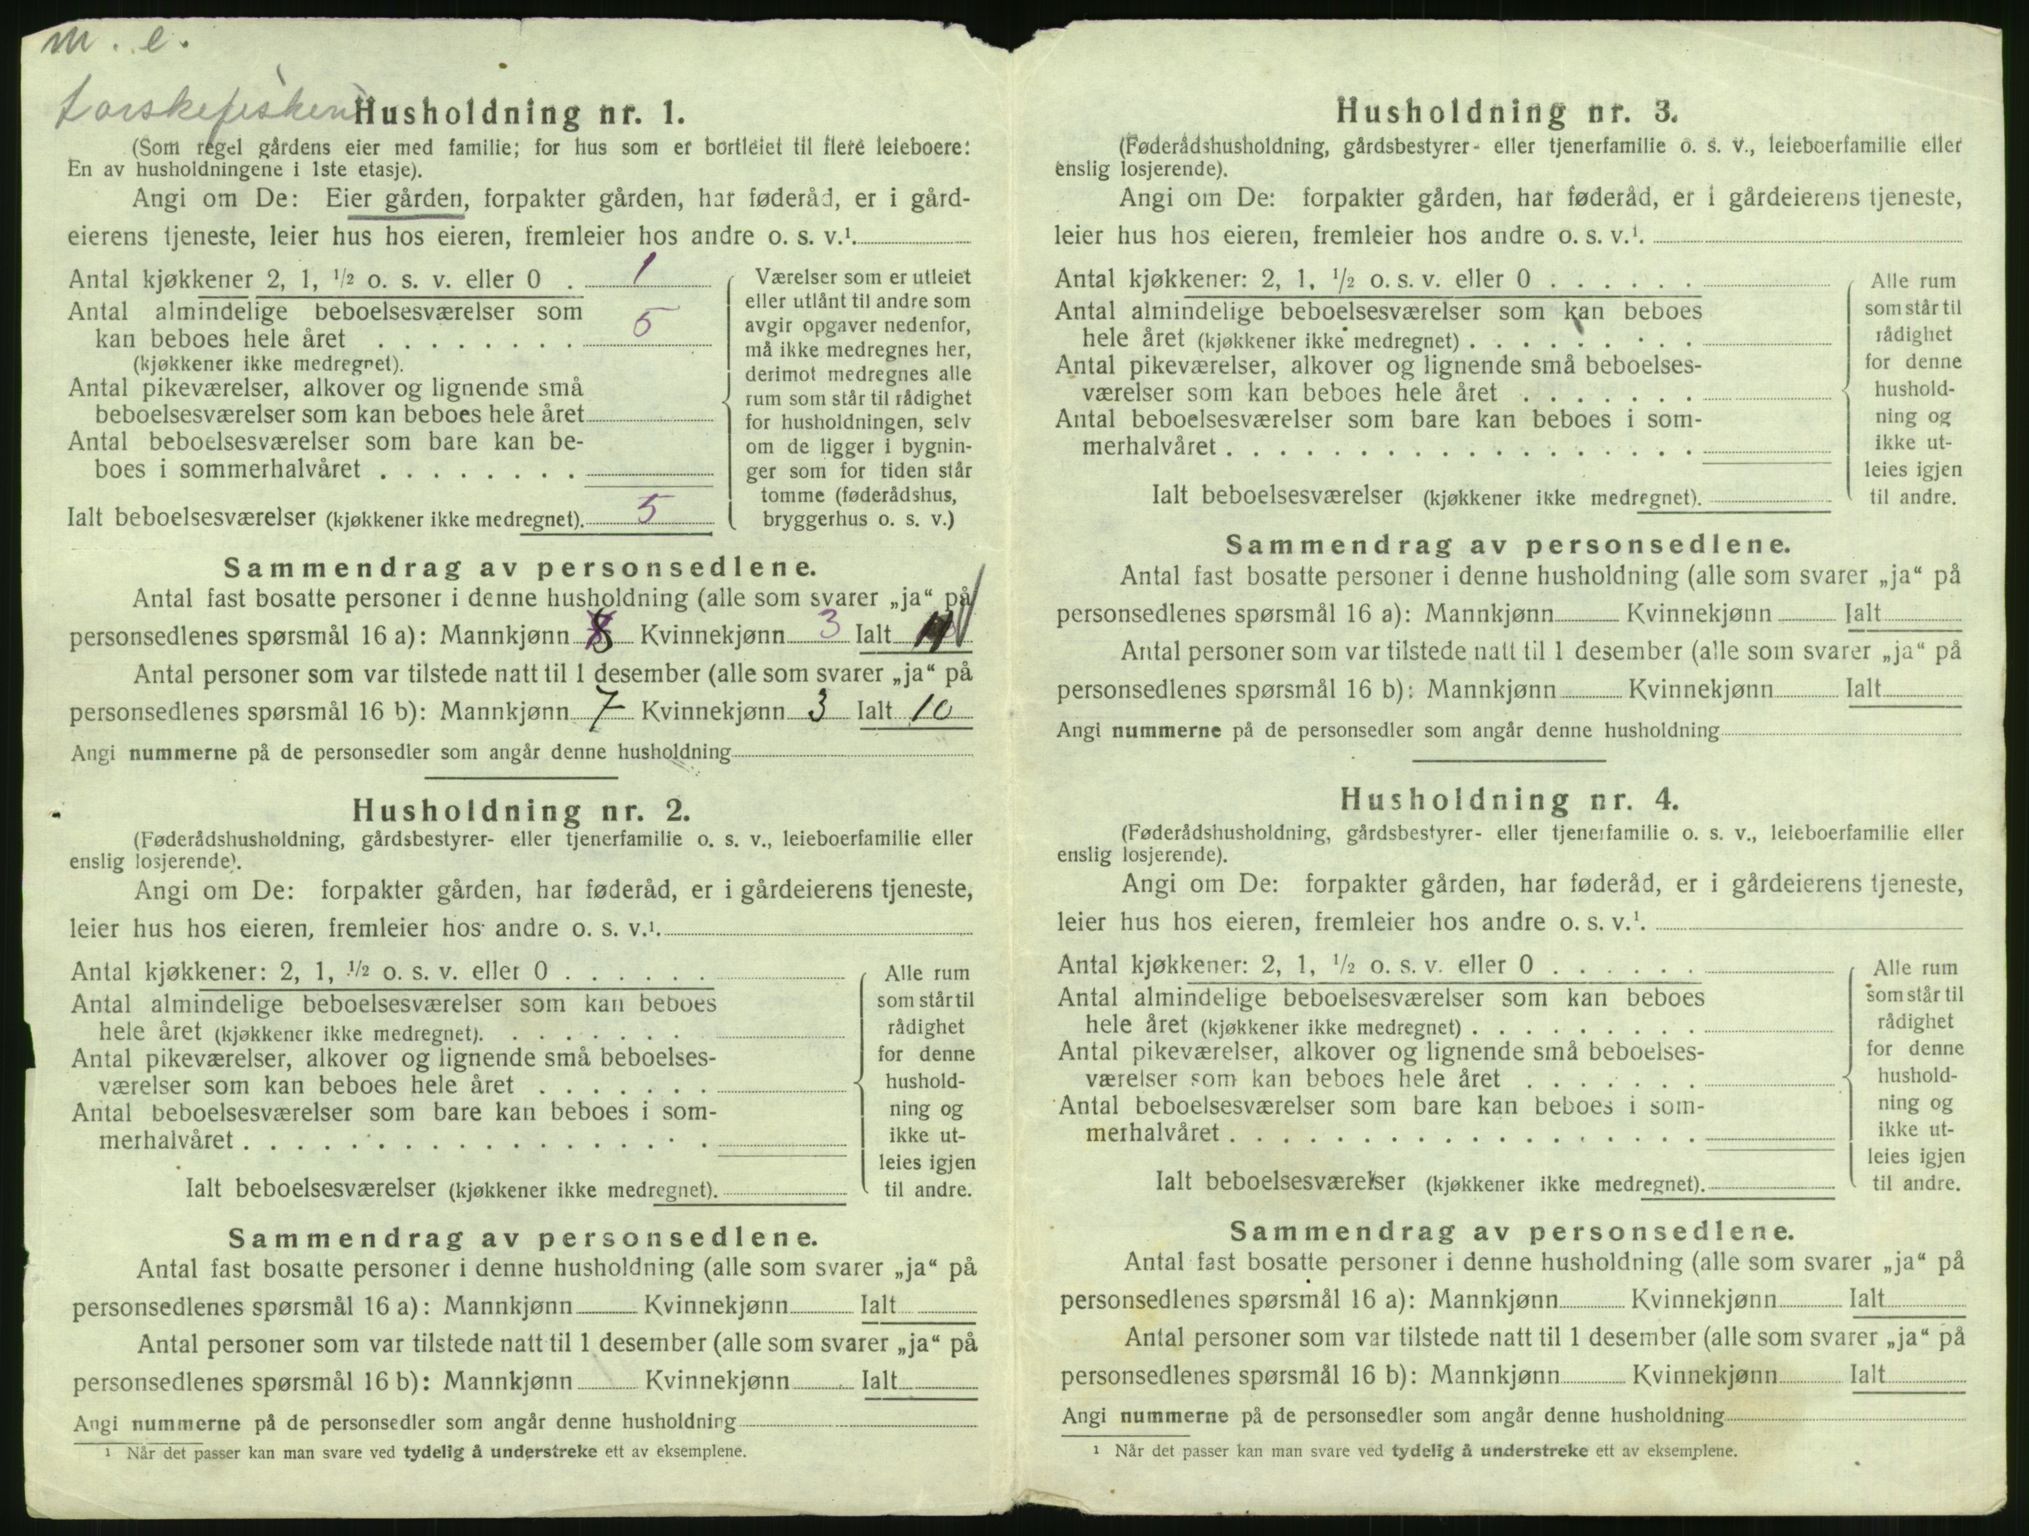 m. e.
torskefisken
Husholdning nr. 1.
(Som regel gårdens eier med familie; for hus som er bortleiet til flere leieboere:
En av husholdningene i 1ste etasje).
Angi om De: Eier gården, forpakter gården, har føderåd, er i gård-
eierens tjeneste, leier hus hos eieren, fremleier hos andre o. s. v.¹.
Antal kjøkkener 2, 1, ½ o. s. v. eller 0 . 1
Antal almindelige beboelsesværelser som
kan beboes hele året . . . . . . . . 5
(kjøkkener ikke medregnet).
Antal pikeværelser, alkover og lignende små
beboelsesværelser som kan beboes hele året
Antal beboelsesværelser som bare kan be-
boes i sommerhalvåret . . . . . . . .
Ialt beboelsesværelser (kjøkkener ikke medregnet). 5
Værelser som er utleiet
eller utlånt til andre som
avgir opgaver nedenfor,
må ikke medregnes her,
derimot medregnes alle
rum som står til rådighet
for husholdningen, selv
om de ligger i bygnin-
ger som for tiden står
tomme (føderådshus,
bryggerhus o. s. v.)
Sammendrag av personsedlene.
Antal fast bosatte personer i denne husholdning (alle som svarer „ja“ på
personsedlenes spørsmål 16 a): Mannkjønn 8 Kvinnekjønn 3 Ialt 11
Antal personer som var tilstede natt til 1 desember (alle som svarer „ja“ på
personsedlenes spørsmål 16 b): Mannkjønn 7 Kvinnekjønn 3 Ialt 10
Angi nummerne på de personsedler som angår denne husholdning
Husholdning nr. 2.
(Føderådshusholdning, gårdsbestyrer- eller tjenerfamilie o. s. v., leieboerfamilie eller
enslig losjerende).
Angi om De: forpakter gården, har føderåd, er i gårdeierens tjeneste,
leier hus hos eieren, fremleier hos andre o. s. v.¹.
Antal kjøkkener: 2, 1, ½ o. s. v. eller 0 . . . . . .
Antal almindelige beboelsesværelser som kan beboes
hele året (kjøkkener ikke medregnet). . . . . . . .
Antal pikeværelser, alkover og lignende små beboelses-
værelser som kan beboes hele året . . . . . . .
Antal beboelsesværelser som bare kan beboes i som-
merhalvåret . . . . . . . . . . . . . . . . . .
Ialt beboelsesværelser (kjøkkener ikke medregnet).
Alle rum
som står til
rådighet
for denne
hushold-
ning og
ikke ut-
leies igjen
til andre.
Sammendrag av personsedlene.
Antal fast bosatte personer i denne husholdning (alle som svarer „ja“ på
personsedlenes spørsmål 16 a): Mannkjønn Kvinnekjønn Ialt
Antal personer som var tilstede natt til 1 desember (alle som svarer „ja“ på
personsedlenes spørsmål 16 b): Mannkjønn Kvinnekjønn Ialt
Angi nummerne på de personsedler som angår denne husholdning
¹ Når det passer kan man svare ved tydelig å understreke ett av eksemplene.
Husholdning nr. 3.
(Føderådshusholdning, gårdsbestyrer- eller tjenerfamilie o. s. v., leieboerfamilie eller
enslig losjerende).
Angi om De: forpakter gården, har føderåd, er i gårdeierens tjeneste,
leier hus hos eieren, fremleier hos andre o. s. v.¹.
Antal kjøkkener: 2, 1, ½ o. s. v. eller 0 . . . . . .
Antal almindelige beboelsesværelser som kan beboes
hele året (kjøkkener ikke medregnet) . . . . . . . . .
Antal pikeværelser, alkover og lignende små beboelses-
værelser som kan beboes hele året . . . . . . .
Antal beboelsesværelser som bare kan beboes i som-
merhalvåret . . . . . . . . . . . . . . . . . .
Ialt beboelsesværelser (kjøkkener ikke medregnet).
Alle rum
som står til
rådighet
for denne
hushold-
ning og
ikke ut-
leies igjen
til andre.
Sammendrag av personsedlene.
Antal fast bosatte personer i denne husholdning (alle som svarer „ja“ på
personsedlenes spørsmål 16 a): Mannkjønn Kvinnekjønn Ialt
Antal personer som var tilstede natt til 1 desember (alle som svarer „ja“ på
personsedlenes spørsmål 16 b): Mannkjønn Kvinnekjønn Ialt
Angi nummerne på de personsedler som angår denne husholdning
Husholdning nr. 4.
(Føderådshusholdning, gårdsbestyrer- eller tjenerfamilie o. s. v., leieboerfamilie eller
enslig losjerende).
Angi om De: forpakter gården, har føderåd, er i gårdeierens tjeneste,
leier hus hos eieren, fremleier hos andre o. s. v.¹.
Antal kjøkkener: 2, 1, ½ o. s. v. eller 0 . . . . . .
Antal almindelige beboelsesværelser som kan beboes
hele året (kjøkkener ikke medregnet) . . . . . . . . .
Antal pikeværelser, alkover og lignende små beboelses-
værelser som kan beboes hele året . . . . . . .
Antal beboelsesværelser som bare kan beboes i som-
merhalvåret . . . . . . . . . . . . . . . . . .
Ialt beboelsesværelser (kjøkkener ikke medregnet).
Alle rum
som står til
rådighet
for denne
hushold-
ning og
ikke ut-
leies igjen
til andre.
Sammendrag av personsedlene.
Antal fast bosatte personer i denne husholdning (alle som svarer „ja“ på
personsedlenes spørsmål 16 a): Mannkjønn Kvinnekjønn Ialt
Antal personer som var tilstede natt til 1 desember (alle som svarer „ja“ på
personsedlenes spørsmål 16 b): Mannkjønn Kvinnekjønn Ialt
Angi nummerne på de personsedler som angår denne husholdning
¹ Når det passer kan man svare ved tydelig å understreke ett av eksemplene.